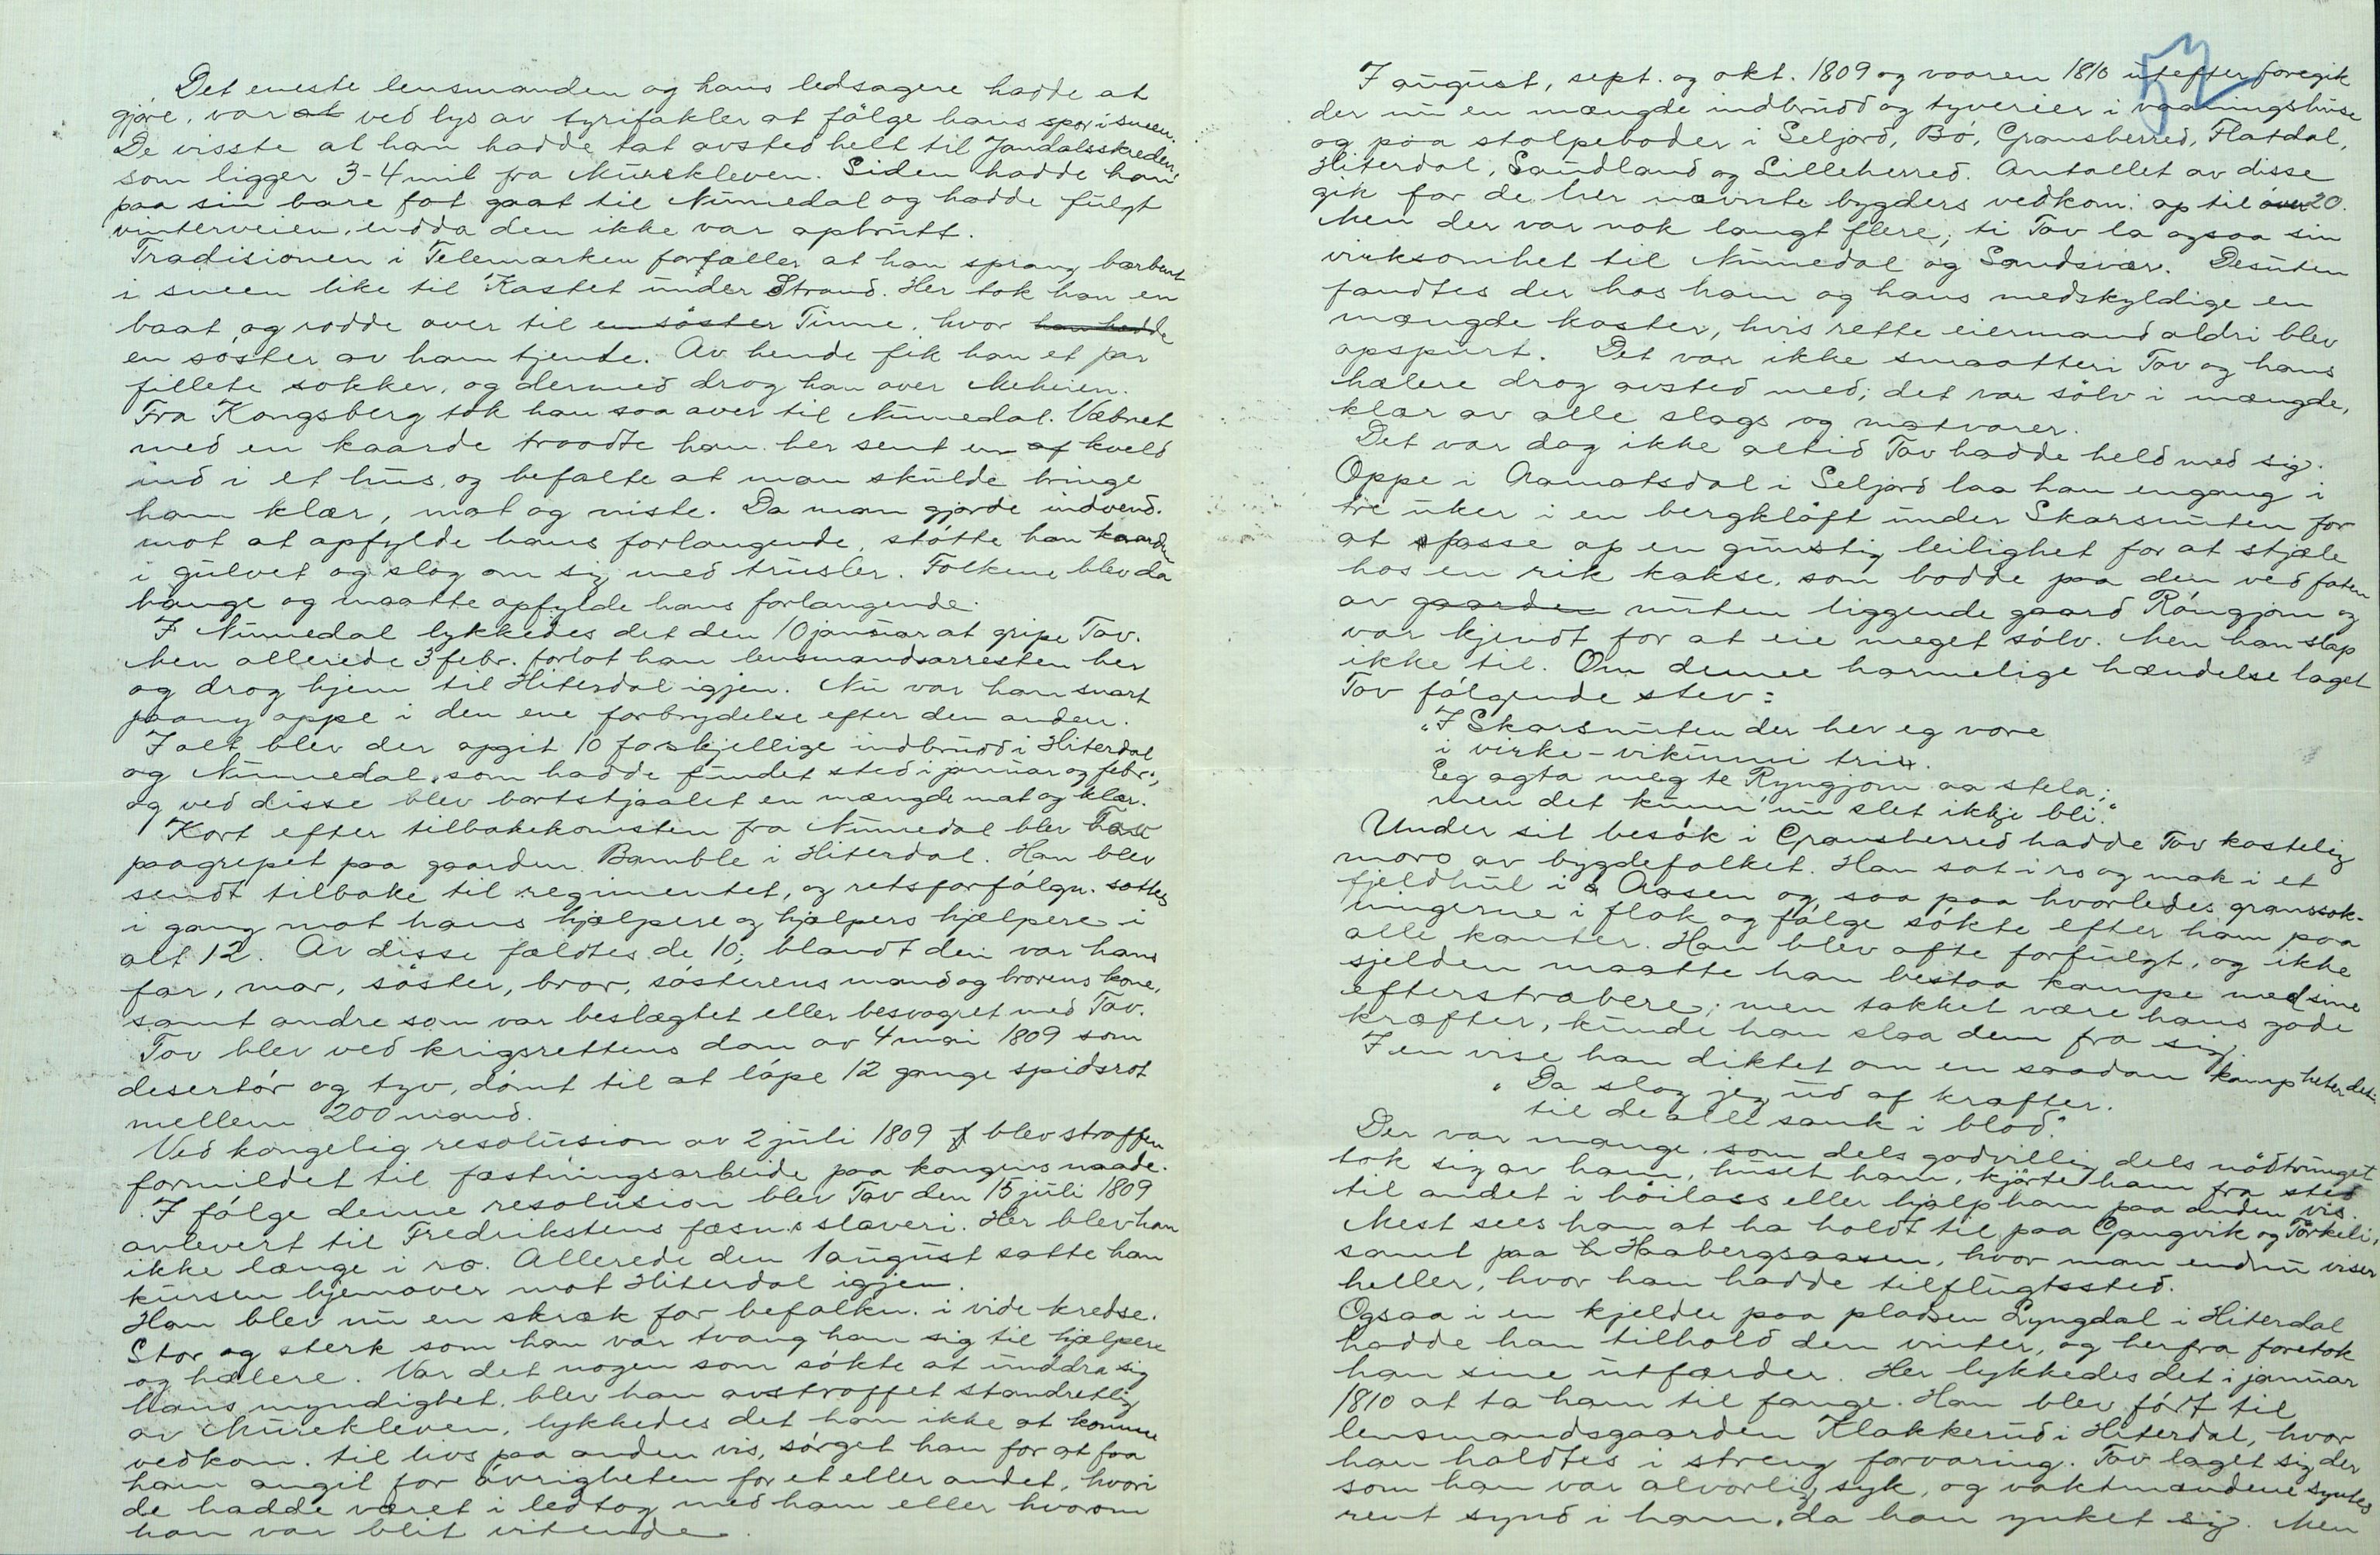 Det eneste lensmanden og hans ledsagere hadde at
gjøre, var at ved lys av tyrifakler at følge hans spor i sneen.
De visste at han hadde tat avsted helt til Jandalsskreden,
som ligger 3-4 mil fra Murekleven. Siden hadde han
paa sin bare fot gaat til Numedal og hadde fulgt
vinterveien, endda den ikke var opbrutt.
Tradisionen i Telemarken fortæller at han sprang barbent
i sneen like til Kastet under Strand. Her tok han en
baat og rodde over til en søster Tinne, hvor han hadde
en søster av ham tjente. Av hende fik han et par
fillete sokker, og dermed drog han over Meheien.
Fra Kongsberg tok han saa over til Numedal. Væbnet
med en kaarde traadte han her sent en af kveld
ind i et hus, og befalte at man skulde bringe
ham klær, mat og niste. Da man gjorde indvend.
mot at opfylde hans forlangende, støtte han kaarden
i gulvet og slog om sig med trusler. Folkene blev da
bange og maatte opfylde hans forlangende.
I Numedal lykkedes det den 10 januar at gripe Tov.
Men allerede 3 febr. forlot han lensmandsarresten her
og drog hjem til Hiterdal igjen. Nu var han snart
paany oppe i den ene forbrydelse efter den anden.
Ialt blev der opgit 10 forskjellige indbrudd i Hiterdal
og Numedal, som hadde fundet sted i januar og febr.,
og ved disse blev bortstjaalet en mængde mat og klær.
Kort efter tilbakekomsten fra Numedal blev Tov
paagrepet paa gaarden Bamble i Hiterdal. Han blev
sendt tilbake til regimentet, og retsforfølgn. sattes
i gang mot hans hjælpere og hjælpers hjælpere i
alt 12. Av disse fældtes de 10; blandt den var hans
far, mor, søster, bror, søsterens mand og brorens kone,
samt andre som var beslægtet eller besvogret med Tov.
Tov blev ved krigsrettens dom av 4 mai 1809 som
desertør og tyv, dømt til at løpe 12 gange spidsrot
mellem 200 mand.
Ved kongelig resolusion av 2 juli 1809 blev straffen
formildet til fæstningsarbeide paa kongens naade.
I følge denne resolusion blev Tov den 15 juli 1809
avlevert til Fredrikstens fæsn.s slaveri. Her blev han
ikke længe i ro. Allerede den 1 august satte han
kursen hjemover mot Hiterdal igjen.
Han blev nu en skræk for befolkn. i vide kredse.
Stor og sterk som han var tvang han sig til hjælpere
og hælere. Var det nogen som søkte at unddra sig
hans myndighet, blev han avstraffet standretlig
av Murekleven, lykkedes det ham ikke at komme
vedkom. til livs paa anden vis, sørget han for at faa
ham angit for øvrigheten for et eller andet, hvori
de hadde været i ledtog med ham eller hvorom
han var blit vitende.
I august, sept. og okt. 1809 og vaaren 1810 utefter foregik
der nu en mængde indbrudd og tyverier i vaaningshuse
og paa stolpeboder i Seljord, Bø, Gransherred, Flatdal,
Hiterdal, Saudland og Lilleherred. Antallet av disse
gik for de her nævnte bygders vedkom. op til over 20.
Men der var nok langt flere; ti Tov la ogsaa sin
virksomhet til Numedal og Sandsvær. Desuten
fandtes der hos ham og hans medskyldige en
mængde koster, hvis rette eiermand aldri blev
opspurt. Det var ikke smaatteri Tov og hans
hælere drog avsted med; det var sølv i mængde,
klær av alle slags og matvarer.
Det var dog ikke altid Tov hadde held med sig.
Oppe i Aamotsdal i Seljord laa han engang i
tre uker i en bergkløft under Skarsnuten for
at passe op en gunstig leilighet for at stjæle
hos en rik kakse, som bodde paa den ved foten
av gaarden nuten liggende gaard Rόngjom og
var kjendt for at eie meget sølv. Men han slap
ikke til. Om denne harmelige hændelse laget
Tov følgende stev:
"I Skarsnuten der hev eg vore
i virke-vikunni tri.
Eg agta meg te Ryngjom aa stela;
men det kunn' nu slet ikkje bli."
Under sit besøk i Gransherred hadde Tov kostelig
moro av bygdefolket. Han sat i ro og mak i et
fjeldhul i Aasen og saa paa hvorledes granssok-
ningerne i flok og følge søkte efter ham paa
alle kanter. Han blev ofte forfulgt, og ikke
sjelden maatte han bestaa kampe med sine
efterstræbere; men takket være hans gode
kræfter, kunde han slaa dem fra sig.
I en vise han diktet om en saadan kamp heter det:
"Da slog jeg ud af kræfter.
til de alle sank i blod."
Der var mange, som dels godvillig dels nødtvunget
tok sig av ham, huset ham, kjørte ham fra sted
til andet i høilass eller hjalp ham paa anden vis.
Mest sees han at ha holdt til paa Gangvik og Torkeli,
samt paa Haabergsaasen, hvor man endnu viser
heller, hvor han hadde tilflugtssted.
Ogsaa i en kjelder paa pladsen Lyngdal i Hiterdal
hadde han tilhold den vinter, og herfra foretok
han sine utfærder. Her lykkedes det i januar
1810 at ta ham til fange. Han blev ført til
lensmandsgaarden Klakkerud i Hiterdal, hvor
han holdtes i streng forvaring. Tov laget sig der
som han var alvorlig syk, og vaktmændene syntes
rent synd i ham, da han ynket sig. Men